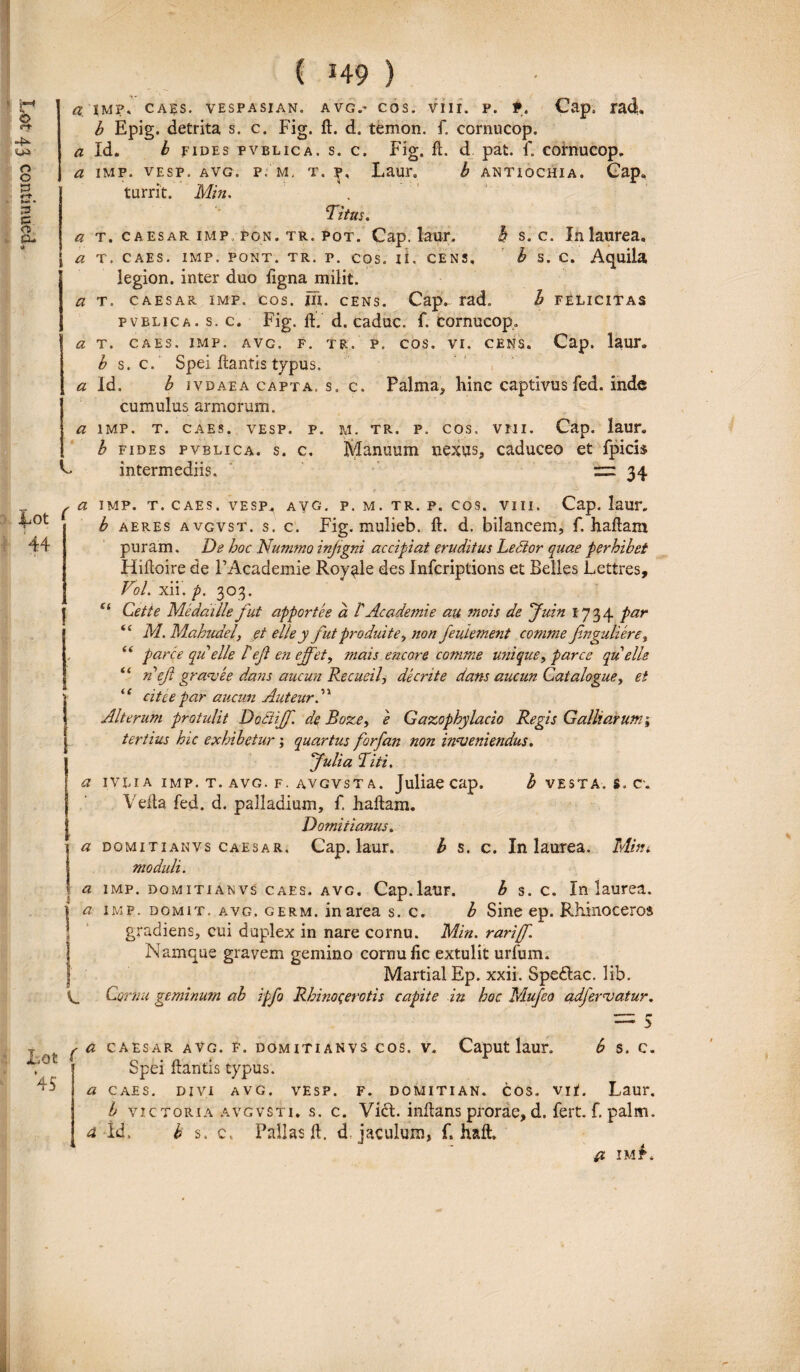 ( 149 )
Lot 43 continued.
a IMP. CAES. VESPASIAN. AVG. COS. VIII. P. P. Cap. rad.
b Epig. detrita s. c. Fig. ſt. d. temon. f. cornucop.
a Id. b FIDES PVBLICA. s. c. Fig. ſt. d. pat. f. cornucop.
a IMP. VESP. AVG. P. M. T. P. Laur. b ANTIOCHIA. Cap.
turrit. Min.
Titus.
a T. CAESAR IMP. PON. TR. POT. Cap. laur. b s. c. In laurea.
a T. CAES. IMP. PONT. TR. P. COS. II. CENS. b s. c. Aquila
legion. inter duo ſigna milit.
a T. CAESAR IMP. COS. III. CENS. Cap. rad. b FELICITAS
PVBLICA. s. c. Fig. ſt. d. caduc. f. cornucop.
a T. CAES. IMP. AVG. F. TR. P. COS. VI. CENS. Cap. laur.
b s. c. Spei ſtantis typus.
a Id. b IVDAEA CAPTA. s. c. Palma, hinc captivus ſed. inde
cumulus armorum.
a IMP. T. CAES. VESP. P. M. TR. P. COS. VIII. Cap. laur.
b FIDES PVBLICA. s. c. Manuum nexus, caduceo et ſpicis
intermediis. = 34
Lot 44
a IMP. T. CAES. VESP. AVG. P. M. TR. P. COS. VIII. Cap. laur.
b AERES AVGVST. s. c. Fig. mulieb. ſt. d. bilancem, f. haſtam
puram. De hoc Nummo inſigni accipiat eruditus Lector quae perhibet
Hiſtoire de l'Academie Royale des Inſcriptions et Belles Lettres,
Vol. xii. p. 303.
“ Cette Médaille fut apportée à l'Academie au mois de Juin 1734 par
“ M. Mahudel, et elle y fut produite, non ſeulement comme ſinguliére,
“ parce qu'elle l'eſt en effet, mais encore comme unique, parce qu'elle
“ n'eſt gravée dans aucun Recueil, décrite dans aucun Catalogue, et
“ citée par aucun Auteur.”
Alterum protulit Doctiſſ. de Boze, è Gazophylacio Regis Galliarum;
tertius hic exhibetur; quartus forſan non inveniendus.
Julia Titi.
a IVLIA IMP. T. AVG. F. AVGVSTA. Juliae cap. b VESTA. s. c.
Veſta ſed. d. palladium, f. haſtam.
Domitianus.
a DOMITIANVS CAESAR. Cap. laur. b s. c. In laurea. Min.
moduli.
a IMP. DOMITIANVS CAES. AVG. Cap. laur. b s. c. In laurea.
a IMP. DOMIT. AVG. GERM. in area s. c. b Sine ep. Rhinoceros
gradiens, cui duplex in nare cornu. Min. rariſſ.
Namque gravem gemino cornu ſic extulit urſum.
Martial Ep. xxii. Spectac. lib.
Cornu geminum ab ipſo Rhinocerotis capite in hoc Muſeo adſervatur.
= 5
Lot 45
a CAESAR AVG. F. DOMITIANVS COS. V. Caput laur. b s. c.
Spei ſtantis typus.
a CAES. DIVI AVG. VESP. F. DOMITIAN. COS. VII. Laur.
b VICTORIA AVGVSTI. s. c. Vict. inſtans prorae, d. fert. f. palm.
a Id. b s. c. Pallas ſt. d. jaculum, f. haſt.
a IMP.